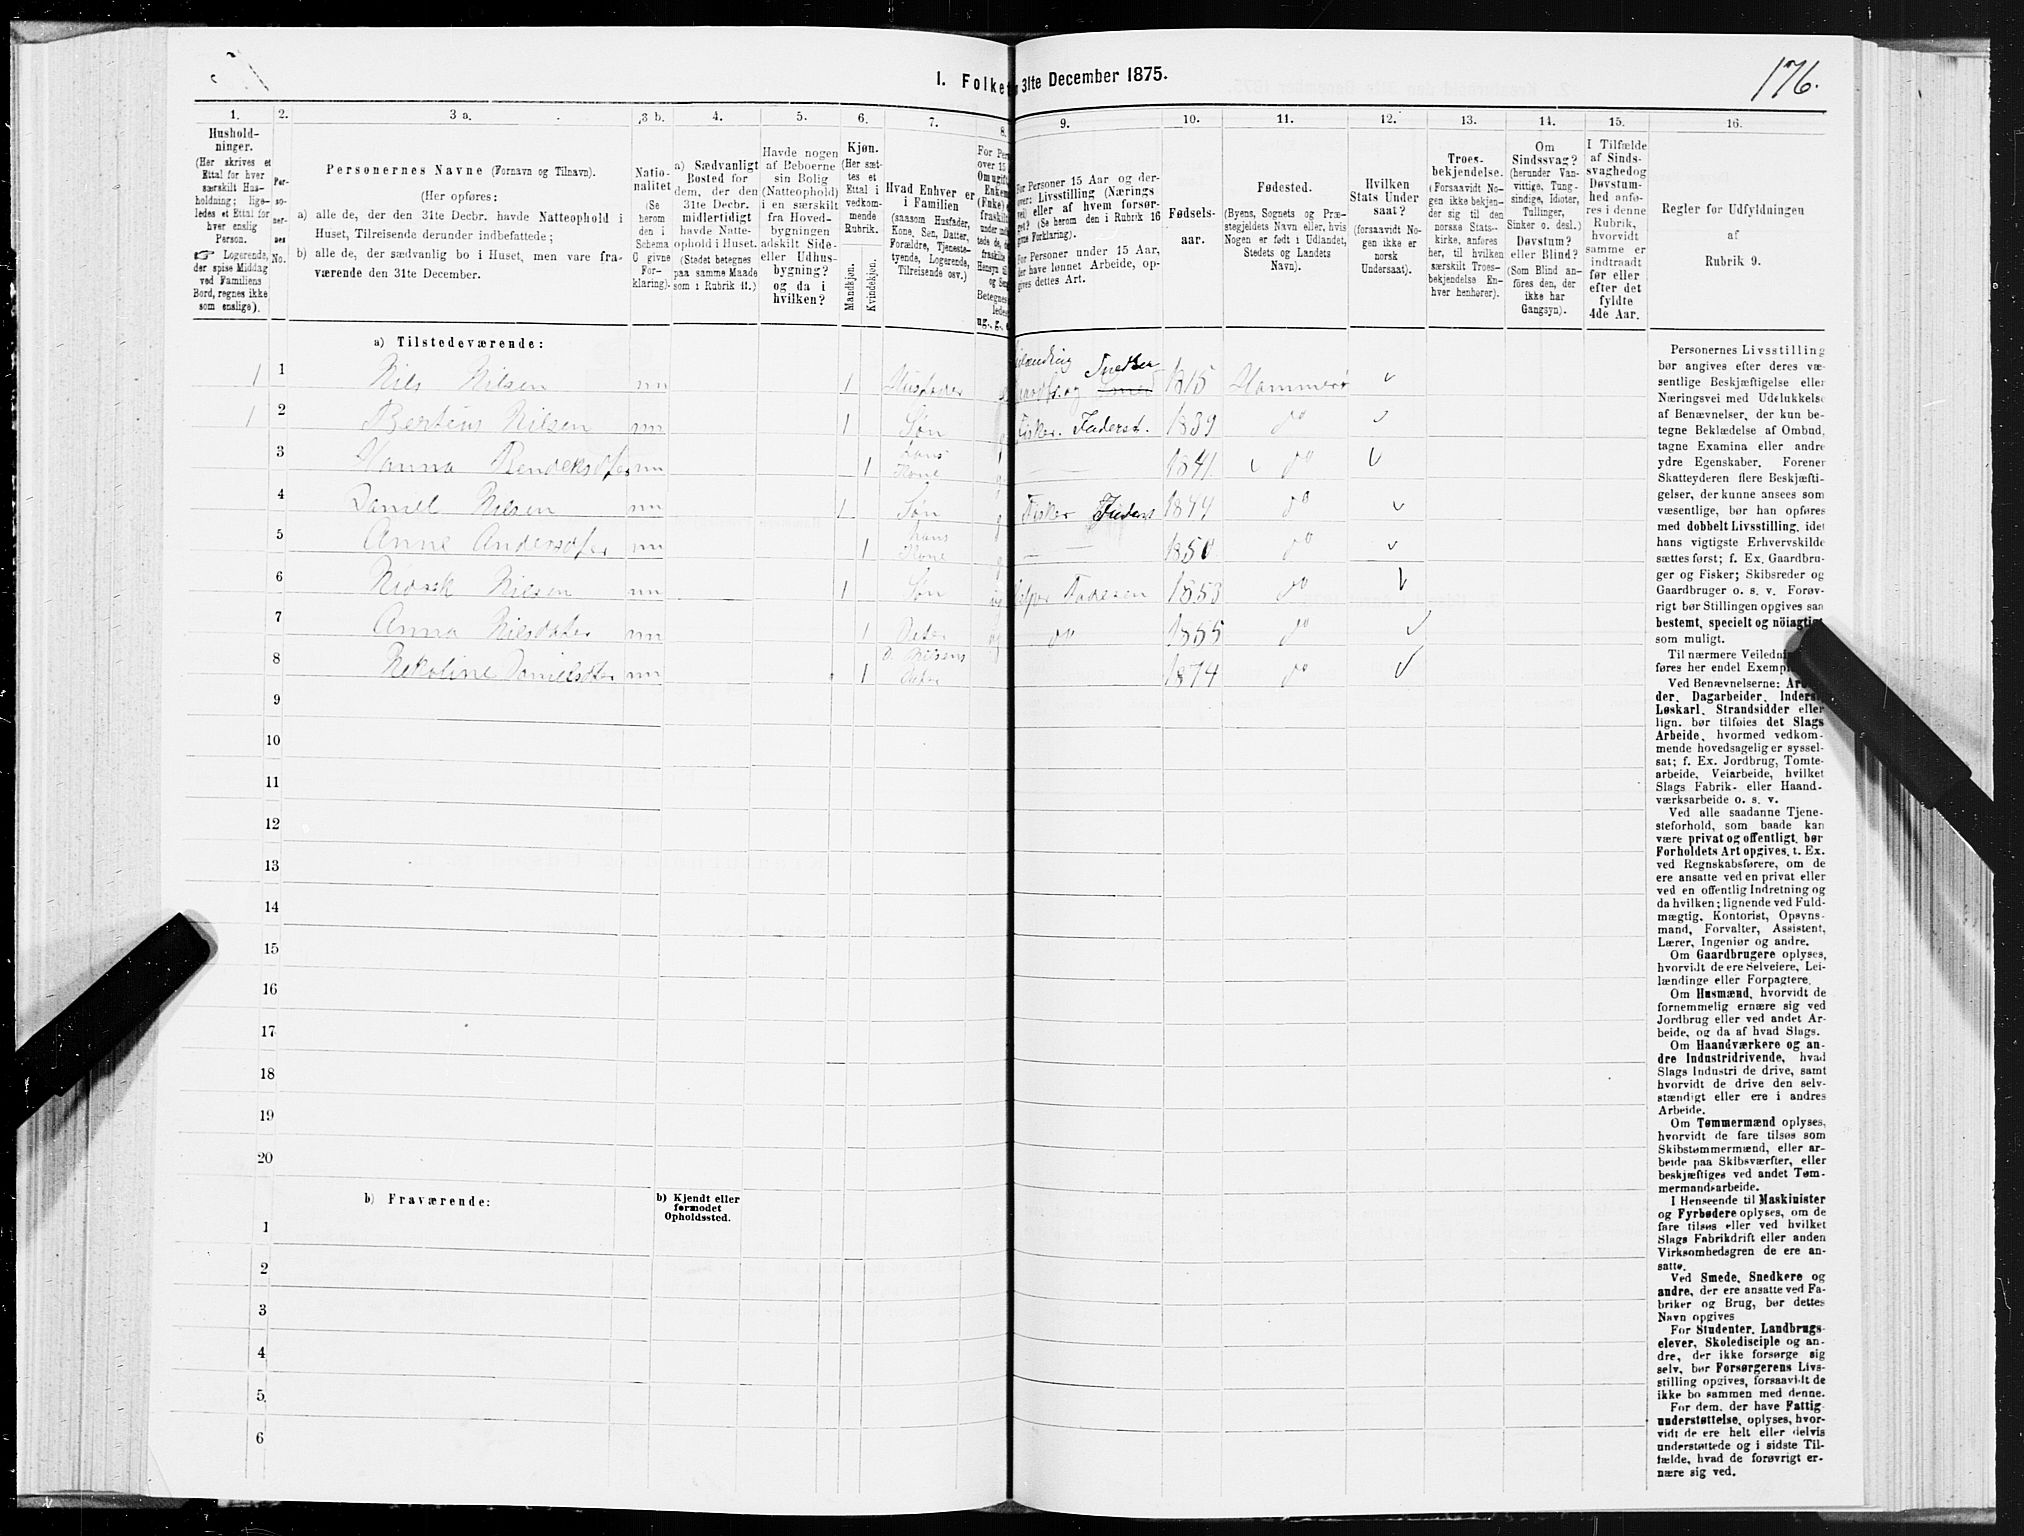 1. Folke 31te December 1875.
176.
1.
Hushold-
ninger.
(Her skrives et
Ettal for hver
særskilt Hus-
holdning; lige-
ledes et Ettal for
hver enslig
Person.
☞ Logerende,
der spise Middag
ved Familiens
Bord, regnes ikke
som enslige).
2.
Per-
so-
ner-
nes
No.
3 a.
Personernes Navne (Fornavn og Tilnavn).
(Her opføres:
a) alle de, der den 31te Decbr. havde Natteophold i
Huset, Tilreisende derunder indbefattede;
b) alle de, der sædvanlig bo i Huset, men vare fra-
værende den 31te December.
3 b.
Natio-
nalitet
(Se
herom
den i
Schema
C givne
For-
klaring).
4.
a) Sædvanligt
Bosted for
dem, der den
31te Decbr.
midlertidigt
havde Natte-
ophold i Huset.
(Stedet betegnes
paa samme Maade
som i Rubrik 11.)
5.
Havde nogen
af Beboerne
sin Bolig
(Natteophold)
i en særskilt
fra Hoved-
bygningen
adskilt Side-
eller Udhus-
bygning?
og da i
hvilken?
6.
Kjøn.
(Her sæt-
tes et
Ettal i
vedkom-
mende
Rubrik.
Mandkjøn.
Kvindekjøn.
7.
Hvad Enhver er
i Familien
(saasom Husfader,
Kone, Søn, Datter,
Forældre, Tjeneste-
tyende, Logerende,
Tilreisende osv.)
8.
For Per
over 15
Om ugift
Enkem
(Enke) e
fraskilt
under in
tede de,
fraskilte
Hensyn til
og Sen
Betegnes
ledes
ug., g., e
9.
For Personer 15 Aar og der-
over: Livsstilling (Nærings
vei) eller af hvem forsør-
get? (Se herom den i Rubrik 16
givne Forklaring).
For Personer under 15 Aar,
der have lønnet Arbeide, op-
gives dettes Art.
10.
Fødsels-
aar.
11.
Fødested.
(Byens, Sognets og Præ-
stegjeldets Navn eller, hvis
Nogen er født i Udlandet,
Stedets og Landets
Navn).
12.
Hvilken
Stats Under
saat?
(forsaavidt No-
gen ikke er
norsk
Undersaat).
13.
Troes-
bekjendelse.
(Forsaavidt No-
gen ikke bekjen-
der sig til den
norske Stats-
kirke, anføres
her, til hvilken
særskilt Troes-
bekjendelse En-
hver henhører).
14.
Om
Sindssvag?
(herunder Van-
vittige, Tung-
sindige, Idioter,
Tullinger,
Sinker o. desl.)
Døvstum?
eller Blind?
(Som Blind an-
føres den, der
ikke har
Gangsyn).
15.
I Tilfælde
af Sinds-
svaghed og
Døvstum-
hed anfø-
res i denne
Rubrik,
hvorvidt
samme er
indtraadt
før eller
efter det
fyldte
4de Aar.
16.
Regler for Udfyldningen
af
Rubrik 9.
a) Tilstedeværende:
1 1 Nils Nilsen nn 1 Husfader 1815 Hammerø ✓
1 2 Bertius Nilsen nn 1 Søn Fisker. Faderst. 1839 do ✓
3 nn 1 hans Kone — 1841. ✓ do ✓
4 Daniel Nilsen nn 1 Søn Fisker 1844 do ✓
5 Anne Andersdter nn 1 hans Kone — 1850 do ✓
6 Nilsen nn 1 Søn Faderen 1853 do ✓
7 Anna Nilsdater nn 1 Dater do 1855 do ✓
8 Nekoline Danielsdter nn 1 D. Nilsens Dater 1874 do ✓
9
10
11
12
13
14
15
16
17
18
19
20
b) Fraværende:
b) Kjendt eller
formodet
Opholdssted.
1
2
3
4
5
6
Personernes Livsstilling
bør angives efter deres væ-
sentlige Beskjæftigelse eller
Næringsvei med Udelukkelse
af Benævnelser, der kun be-
tegne Beklædelse af Ombud,
tagne Examina eller andre
ydre Egenskaber. Forener
Skatteyderen flere Beskjæfti-
gelser, der kunne ansees som
væsentlige, bør han opføres
med dobbelt Livsstilling, idet
hans vigtigste Erhvervskilde
sættes først; f. Ex. Gaardbru-
ger og Fisker; Skibsreder og
Gaardbruger o. s. v. Forøv-
rigt bør Stillingen opgives saa
bestemt, specielt og nöiagtigt
som muligt.
Til nærmere Veiledn
føres her endel Exemp
Ved Benævnelserne: Ar
der, Dagarbeider, Inders
Løskarl, Strandsidder eller
lign. bør tilføies det Slags
Arbeide, hvormed vedkom-
mende hovedsagelig er syssel-
sat; f. Ex. Jordbrug, Tomte-
arbeide, Veiarbeide, hvilket
Slags Fabrik- eller Haand-
værksarbeide o. s. v.
Ved alle saadanne Tjene-
steforhold, som baade kan
være privat og offentligt, bør
Forholdets Art opgives, t. Ex.
ved Regnskabsførere, om de
ere ansatte ved en privat eller
ved en offentlig Indretning og
da hvilken; lignende ved Fuld-
mægtig, Kontorist, Opsyns-
mand, Forvalter, Assistent,
Lærer, Ingeniør og andre.
Om Gaardbrugere oplyses,
hvorvidt de ere Selveiere, Lei-
lændinge eller Forpagtere.
Om Husmænd, hvorvidt de
fornemmelig ernære sig ved
Jordbrug eller ved andet Ar-
beide, og da af hvad Slags.
Om Haandværkere og an-
dre Industridrivende, hvad
Slags Industri de drive, samt
hvorvidt de drive den selv-
stændigt eller ere i andres
Arbeide.
Om Tømmermænd oplyses,
hvorvidt de fare tilsøs som
Skibstømmermænd, eller ar-
beide paa Skibsværfter, eller
beskjæftiges ved andet Tøm-
mermandsarbeide.
I Henseende til Maskinister
og Fyrbødere oplyses, om de
fare tilsøs eller ved hvilket
Slags Fabrikdrift eller anden
Virksomhedsgren de ere an-
satte.
Ved Smede, Snedkere og
andre, der ere ansatte ved Fa-
briker og Brug, bør dettes
Navn opgives
For Studenter, Landbrugs-
elever, Skoledisciple og an-
dre, der ikke forsørge sig
selv, bør Forsørgerens Livs-
stilling opgives, forsaavidt de
ikke bo sammen med denne.
For dem, der have Fattig-
understøttelse, oplyses, hvor-
vidt de ere helt eller delvis
understøttede og i sidste Til-
fælde, hvad de forøvrigt er-
nære sig ved.